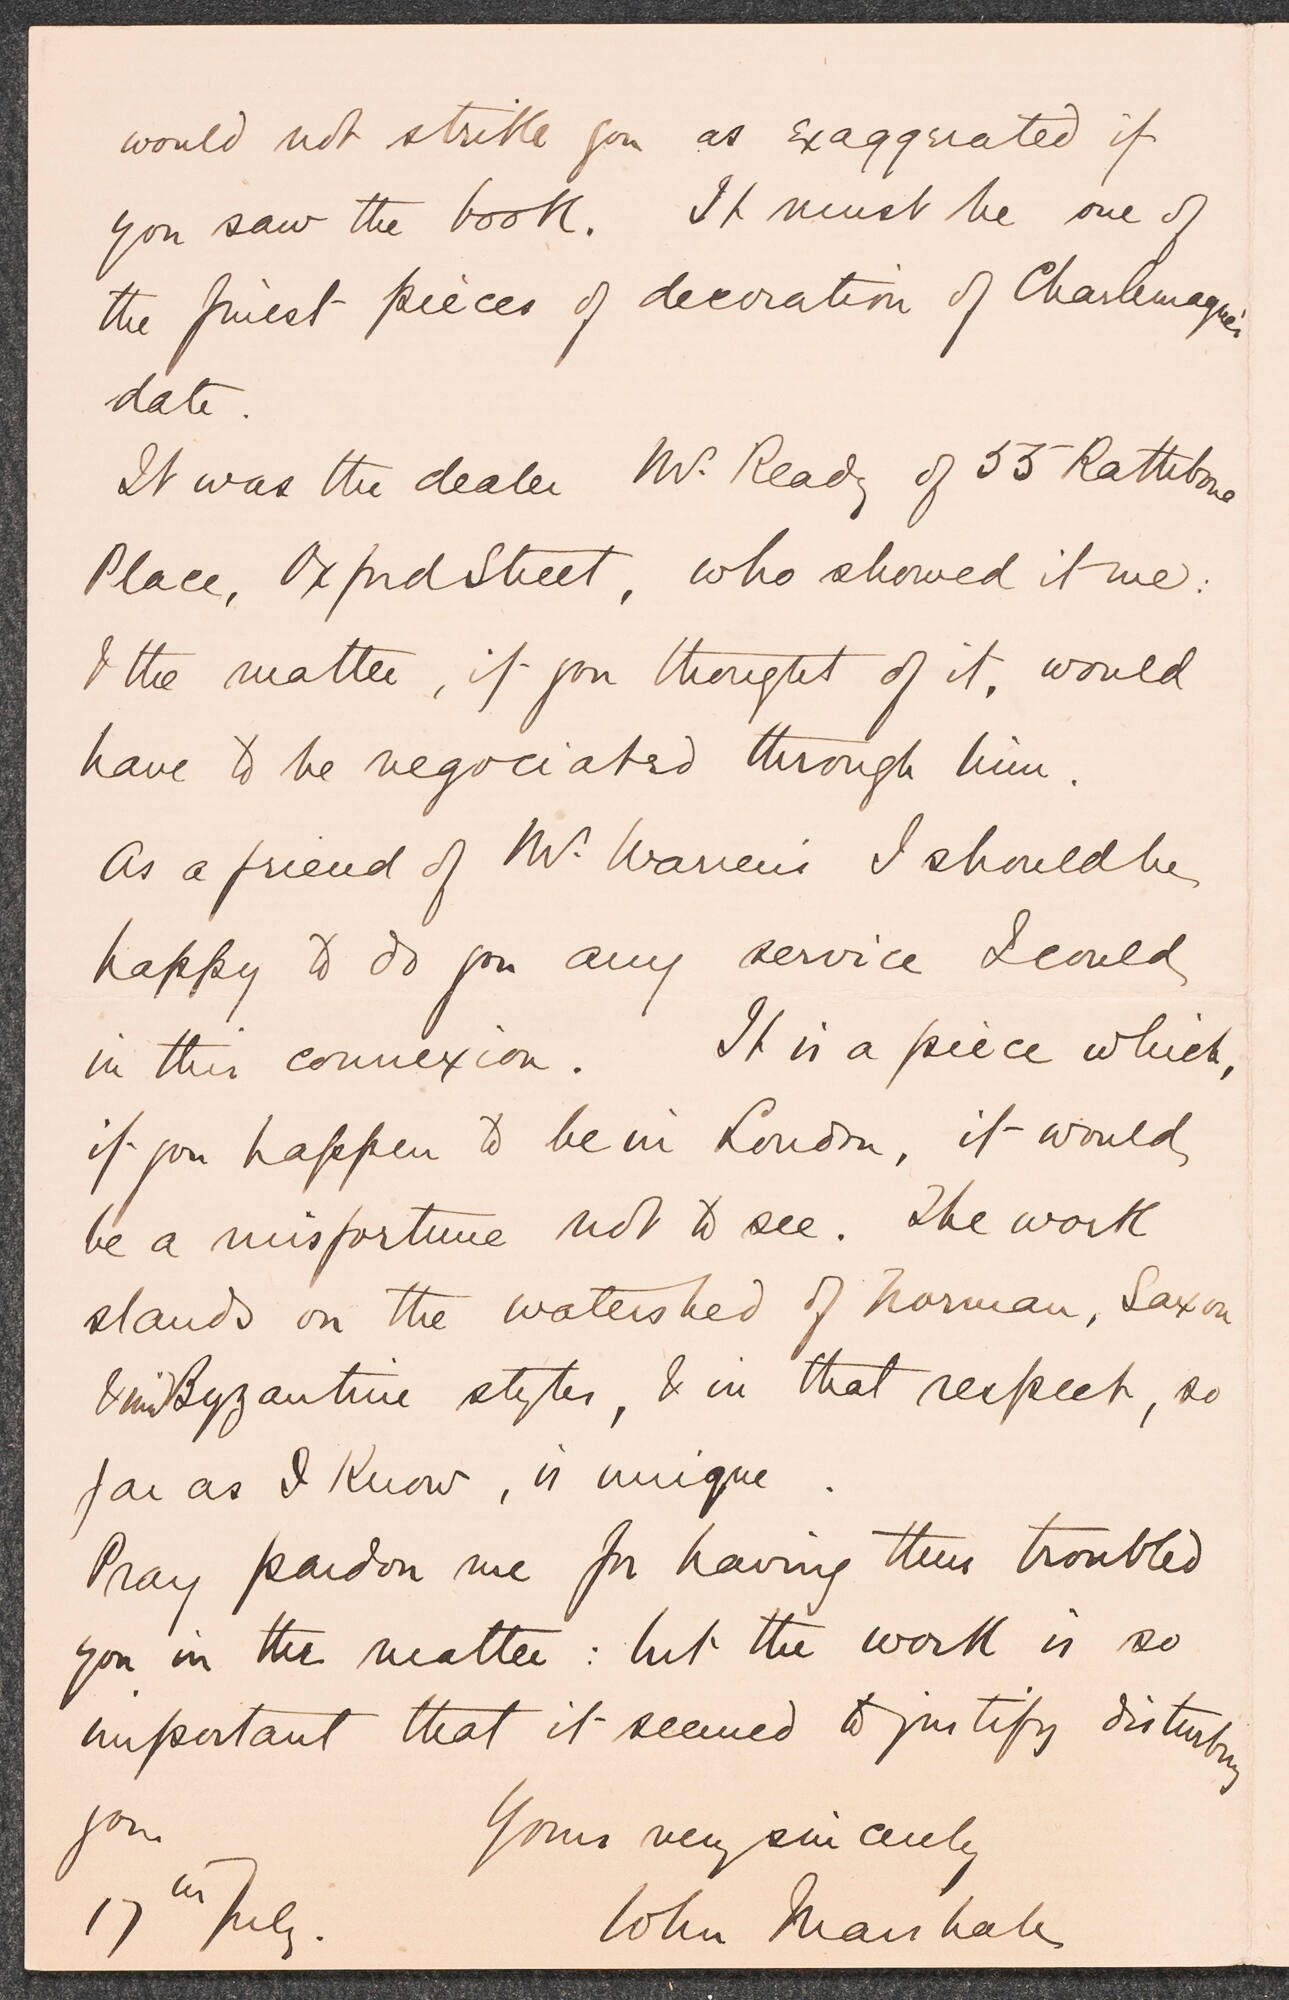 would not strike you as exaggerated if
you saw the book. It must be one of
the finest pieces of decoration of Charlemagne's
date.
It was the dealer Mr. Ready of 55 Rathbone
Place, Oxford Street, who showed it me:
& the matter, if you thought of it, would
have to be negociated through him.
As a friend of Mr. Warren's I should be
happy to do you any service I could
in this connexion. It is a piece which,
if you happen to be in London, it would
be a misfortune not to see. The work
stands on the watershed of Norman, Saxon
& Byzantine styles, & in that respect, so
far as I know, is unique.
Pray pardon me for having thus troubled
you in the matter: but the work is so
important that it seemed to justify disturbing
you.
Yours very sincerely
17th July. John Marshall